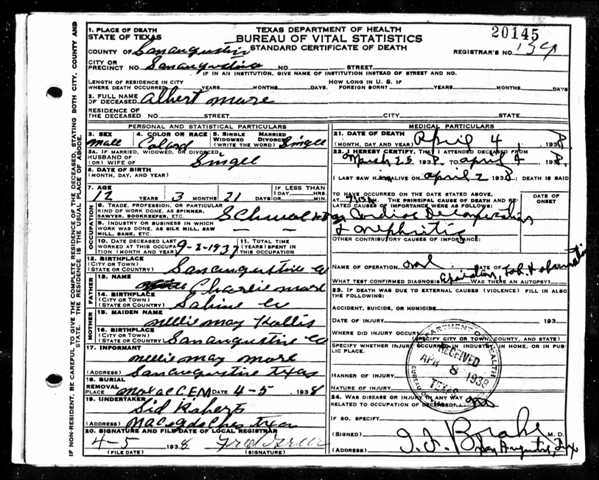 1. PLACE OF DEATH
STATE OF TEXAS
TEXAS DEPARTMENT OF HEALTH
BUREAU OF VITAL STATISTICS
STANDARD CERTIFICATE OF DEATH
20145
COUNTY OF San augustin
REGISTRAR'S NO.
CITY OR
PRECINCT NO. San augustine NO. STREET
IF IN AN INSTITUTION, GIVE NAME OF INSTITUTION INSTEAD OF STREET AND NO.
LENGTH OF RESIDENCE IN CITY
WHERE DEATH OCCURRED YEARS MONTHS DAYS
HOW LONG IN U. S.
IF FOREIGN BORN? YEARS MONTHS DAYS
2. FULL NAME
OF DECEASED Albert more
RESIDENCE OF
THE DECEASED NO. STREET CITY STATE
PERSONAL AND STATISTICAL PARTICULARS
MEDICAL PARTICULARS
3. SEX
male
4. COLOR OR RACE
Colard
5. SINGLE MARRIED
WIDOWED DIVORCED
(WRITE THE WORD) Singel
5A. IF MARRIED, WIDOWED, OR DIVORCED
HUSBAND OF
(OR) WIFE OF Singel
6. DATE OF BIRTH
(MONTH, DAY, AND YEAR)
7. AGE YEARS MONTHS DAYS
12 3 21
IF LESS THAN
1 DAY
8. TRADE, PROFESSION, OR PARTICULAR
KIND OF WORK DONE, AS SPINNER,
SAWYER, BOOKKEEPER, ETC
9. INDUSTRY OR BUSINESS IN WHICH
WORK WAS DONE, AS SILK MILL, SAW
MILL, BANK, ETC.
10. DATE DECEASED LAST
WORKED AT THIS OCCUPATION (MONTH AND YEAR) 9-1-1937
11. TOTAL YEARS
SPENT IN
THIS OCCUPATION
12. BIRTHPLACE
(CITY OR TOWN)
(STATE OR COUNTRY) San augustine co
13. NAME
Charlie more
14. BIRTHPLACE
(CITY OR TOWN)
(STATE OR COUNTRY) Sabine co
15. MAIDEN NAME
nellie may Hollis
16. BIRTHPLACE
(CITY OR TOWN)
(STATE OR COUNTRY) San augustine co
17. INFORMANT
nellie may more
(ADDRESS) San augustine texas
18. BURIAL
REMOVAL
PLACE CEM DATE 4-5 1938
19. UNDERTAKER
Sid Roberts
(ADDRESS) Nacogdoches texas
20. SIGNATURE AND FILE DATE OF LOCAL REGISTRAR
4-5 1938
(FILE DATE) (SIGNATURE)
21. DATE OF DEATH
(MONTH, DAY AND YEAR) April 4 1938
22. I HEREBY CERTIFY, THAT I ATTENDED DECEASED FROM
March 25 1938, TO April 4 1938,
I LAST SAW H ALIVE ON april 2 1938. DEATH IS SAID
TO HAVE OCCURRED ON THE DATE STATED ABOVE,
THE PRINCIPAL CAUSE OF DEATH AND RELATED CAUSES OF IMPORTANCE WERE AS FOLLOWS:
DATE OF
ONSET
Cardiac Decompensation
& nephritis
OTHER CONTRIBUTORY CAUSES OF IMPORTANCE
NAME OF OPERATION DATE OF
WHAT TEST CONFIRMED DIAGNOSIS WAS THERE AN AUTOPSY?
23. IF DEATH WAS DUE TO EXTERNAL CAUSES (VIOLENCE) FILL IN ALSO
THE FOLLOWING:
ACCIDENT, SUICIDE, OR HOMICIDE
DATE OF INJURY 193
WHERE DID INJURY OCCUR
(SPECIFY CITY OR TOWN, COUNTY, AND STATE)
SPECIFY WHETHER INJURY OCCURRED IN INDUSTRY, IN HOME, OR IN PUBLIC PLACE.
MANNER OF INJURY
NATURE OF INJURY
24. WAS DISEASE OR INJURY IN ANY WAY
RELATED TO OCCUPATION OF DECEASED no
IF SO, SPECIFY
(SIGNED) M. D.
(ADDRESS) San Augustine, Tex
RECEIVED
APR 8 1938